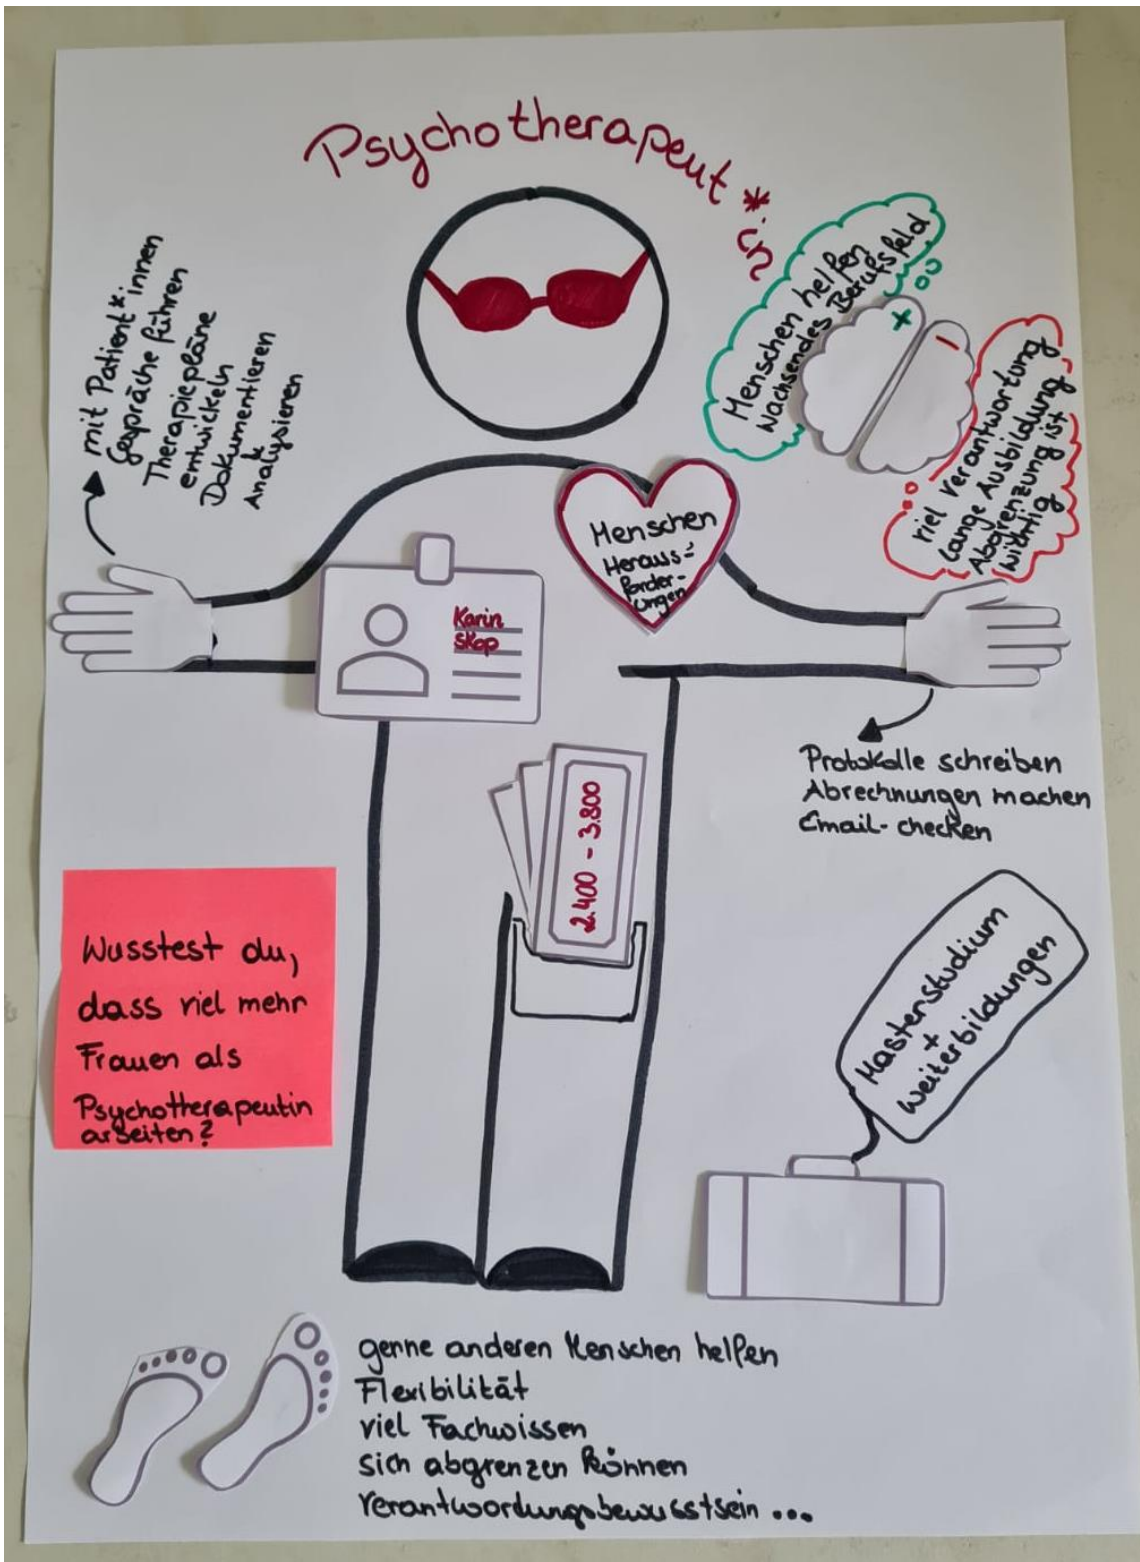 Psychotherapeut*in
mit Patient*innen
Gespräche führen
Therapiepläne
entwickeln
Dokumentieren
&
Analysieren
Menschen helfen
Wachsendes Berufsfeld
+
-
viel Verantwortung
Lange Ausbildung
Abgrenzung ist
wichtig
Menschen
Heraus=
forder-
ungen
Karin
Skop
Protokolle schreiben
Abrechnungen machen
Email-checken
2.400 - 3.800
Wusstest du,
dass viel mehr
Frauen als
Psychotherapeutin
arbeiten?
Masterstudium
+
Weiterbildungen
gerne anderen Menschen helfen
Flexibilität
viel Fachwissen
sich abgrenzen können
Verantwordungsbewusstsein ...